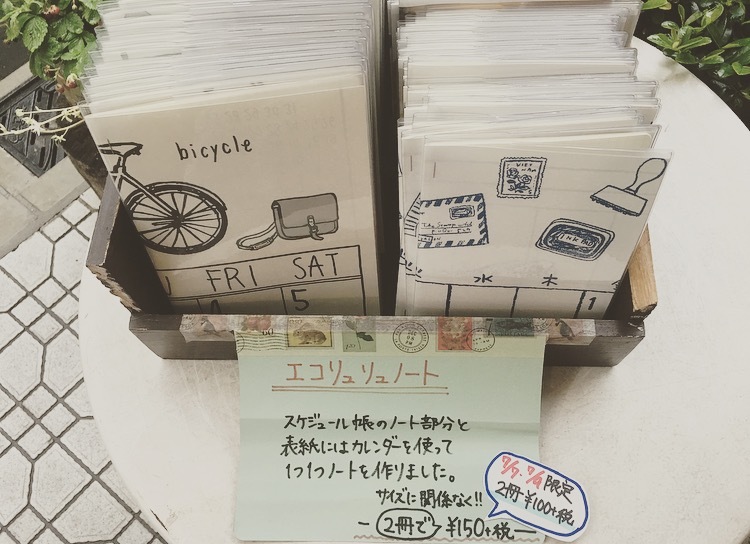 bicycle
FRI SAT
5
VIET NAM
INK PAD
水 木
1
エコリュリュノート
スケジュール帳のノート部分と
表紙にはカレンダーを使って
1つ1つノートを作りました。
サイズに関係なく!!
2冊で ¥150+税
限定
2冊¥100+税